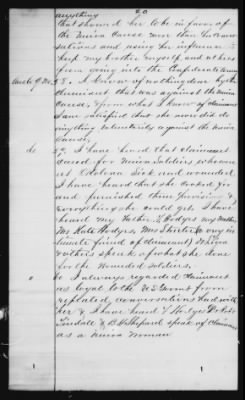 anything 20
that showed her to be in favor of
the Union Cause more than her conver
sations and using her influence to
keep my brother myself and others
from going into the Confederate
58. I know of nothing done by the
claimant that was against the Union
Cause, & from what I know of claimant
I am satisfied that she never did do
anything voluntarily against the Union
Cause.
59. I have heard that claimant
cared for Union Soldiers who were
at sick and wounded.
I have heard that she cooked for
and furnished them provisions &
everything she could get. I have
heard my Father Hodges my Mother
Mrs Kate Hodges, Mrs (a very in
timate friend of claimant) &
others speak of what she done
for the wounded Soldiers.
60 I always regarded Claimant
as loyal to the US Govmt from
repeated conversations had with
her & I have heard Hodges
& Shepard speak of claimant
as a Union woman